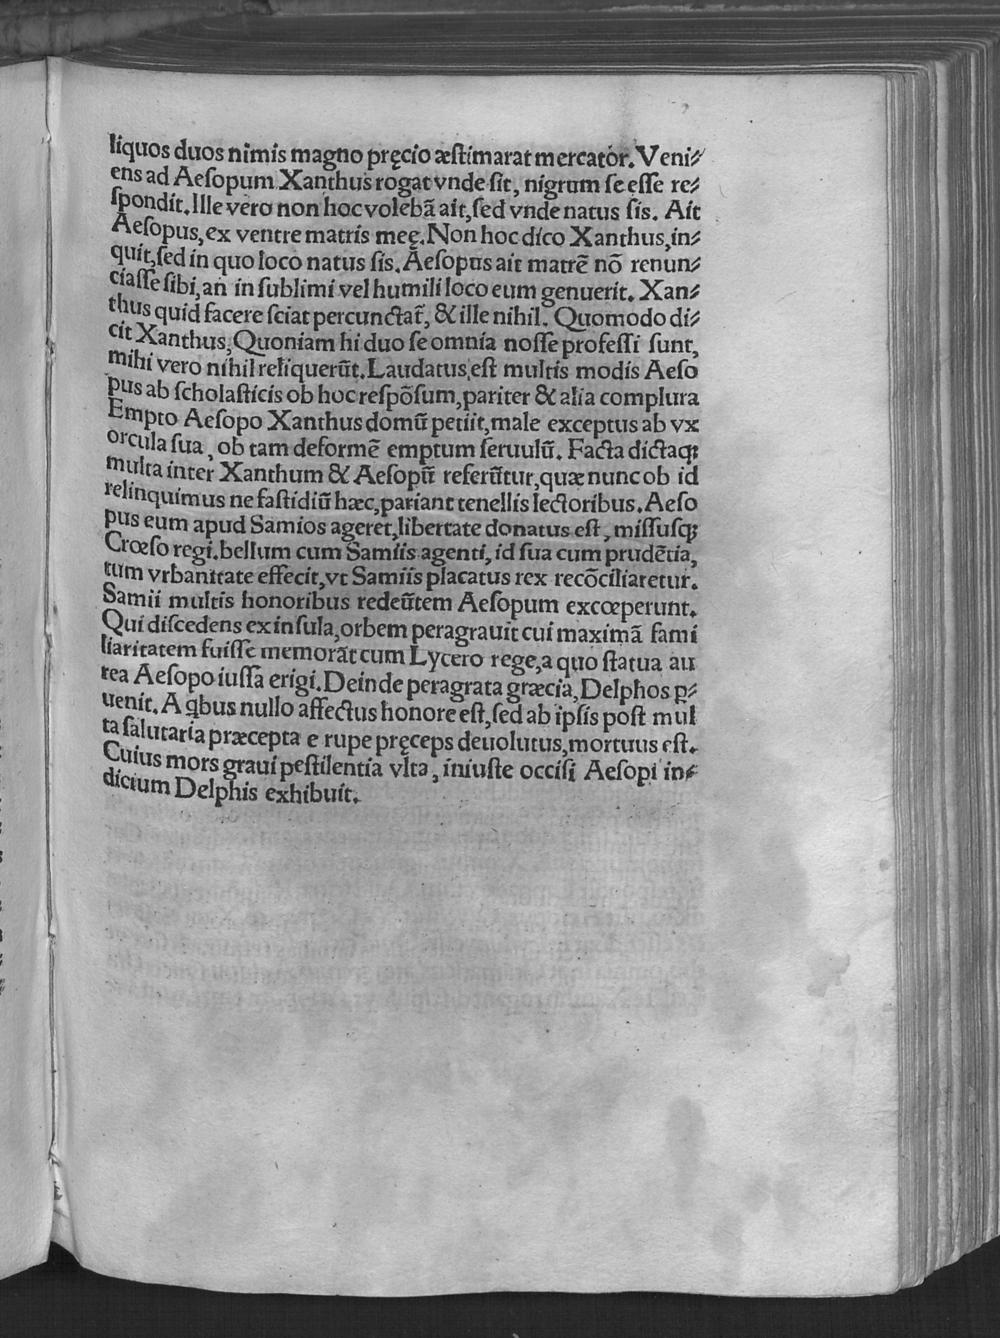 liquos duos nimis magno pręcio æſtimarat mercator. Veni⸗
ens ad Aeſopum Xanthus rogat vnde ſit, nigrum ſe eſſe re⸗
ſpondit. Ille vero non hoc volebã ait, ſed vnde natus ſis. Ait
Aeſopus, ex ventre matris meę. Non hoc dico Xanthus, in⸗
quit, ſed in quo loco natus ſis. Aeſopus ait matrẽ nõ renun⸗
ciaſſe ſibi, an in ſublimi vel humili loco eum genuerit. Xan⸗
thus quid facere ſciat percunctat᷑, & ille nihil. Quomodo di⸗
cit Xanthus, Quoniam hi duo ſe omnia noſſe profeſſi ſunt,
mihi vero nihil reliquerũt. Laudatus, eſt multis modis Aeſo
pus ab ſcholaſticis ob hoc reſpõſum, pariter & alia complura
Empto Aeſopo Xanthus domũ petiit, male exceptus ab vx
orcula ſua, ob tam deformẽ emptum ſeruulũ. Facta dictaqꝫ
multa inter Xanthum & Aeſopũ referũtur, quæ nunc ob id
relinquimus ne faſtidiũ hæc, pariant tenellis lectoribus. Aeſo
pus eum apud Samios ageret, libertate donatus eſt, miſſuſqꝫ
Crœſo regi. bellum cum Samiis agenti, id ſua cum prudẽtia,
tum vrbanitate effecit, vt Samiis placatus rex recõciliaretur.
Samii multis honoribus redeũtem Aeſopum excœperunt.
Qui diſcedens ex inſula, orbem peragrauit cui maximã fami
liaritatem fuiſſe memorãt cum Lycero rege, a quo ſtatua au
rea Aeſopo iuſſa erigi. Deinde peragrata græcia, Delphos ꝑ⸗
uenit. A qbus nullo affectus honore eſt, ſed ab ipſis poſt mul
ta ſalutaria præcepta e rupe pręceps deuolutus, mortuus eſt.
Cuius mors graui peſtilentia vlta, iniuſte occiſi Aeſopi in⸗
dicium Delphis exhibuit.